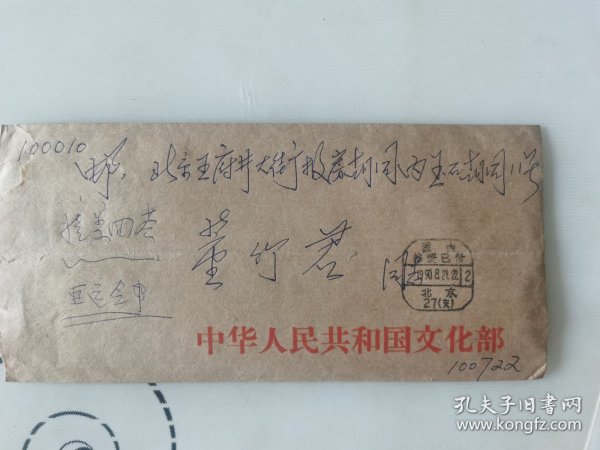 100010
邮：北京王府井大街报房胡同内玉石胡同11号
董竹君 同志
亚运会
国内
邮资已付
1990.8.21.22 2
北京
27(支)
中华人民共和国文化部
100722
孔夫子旧书网
www.kongfz.com